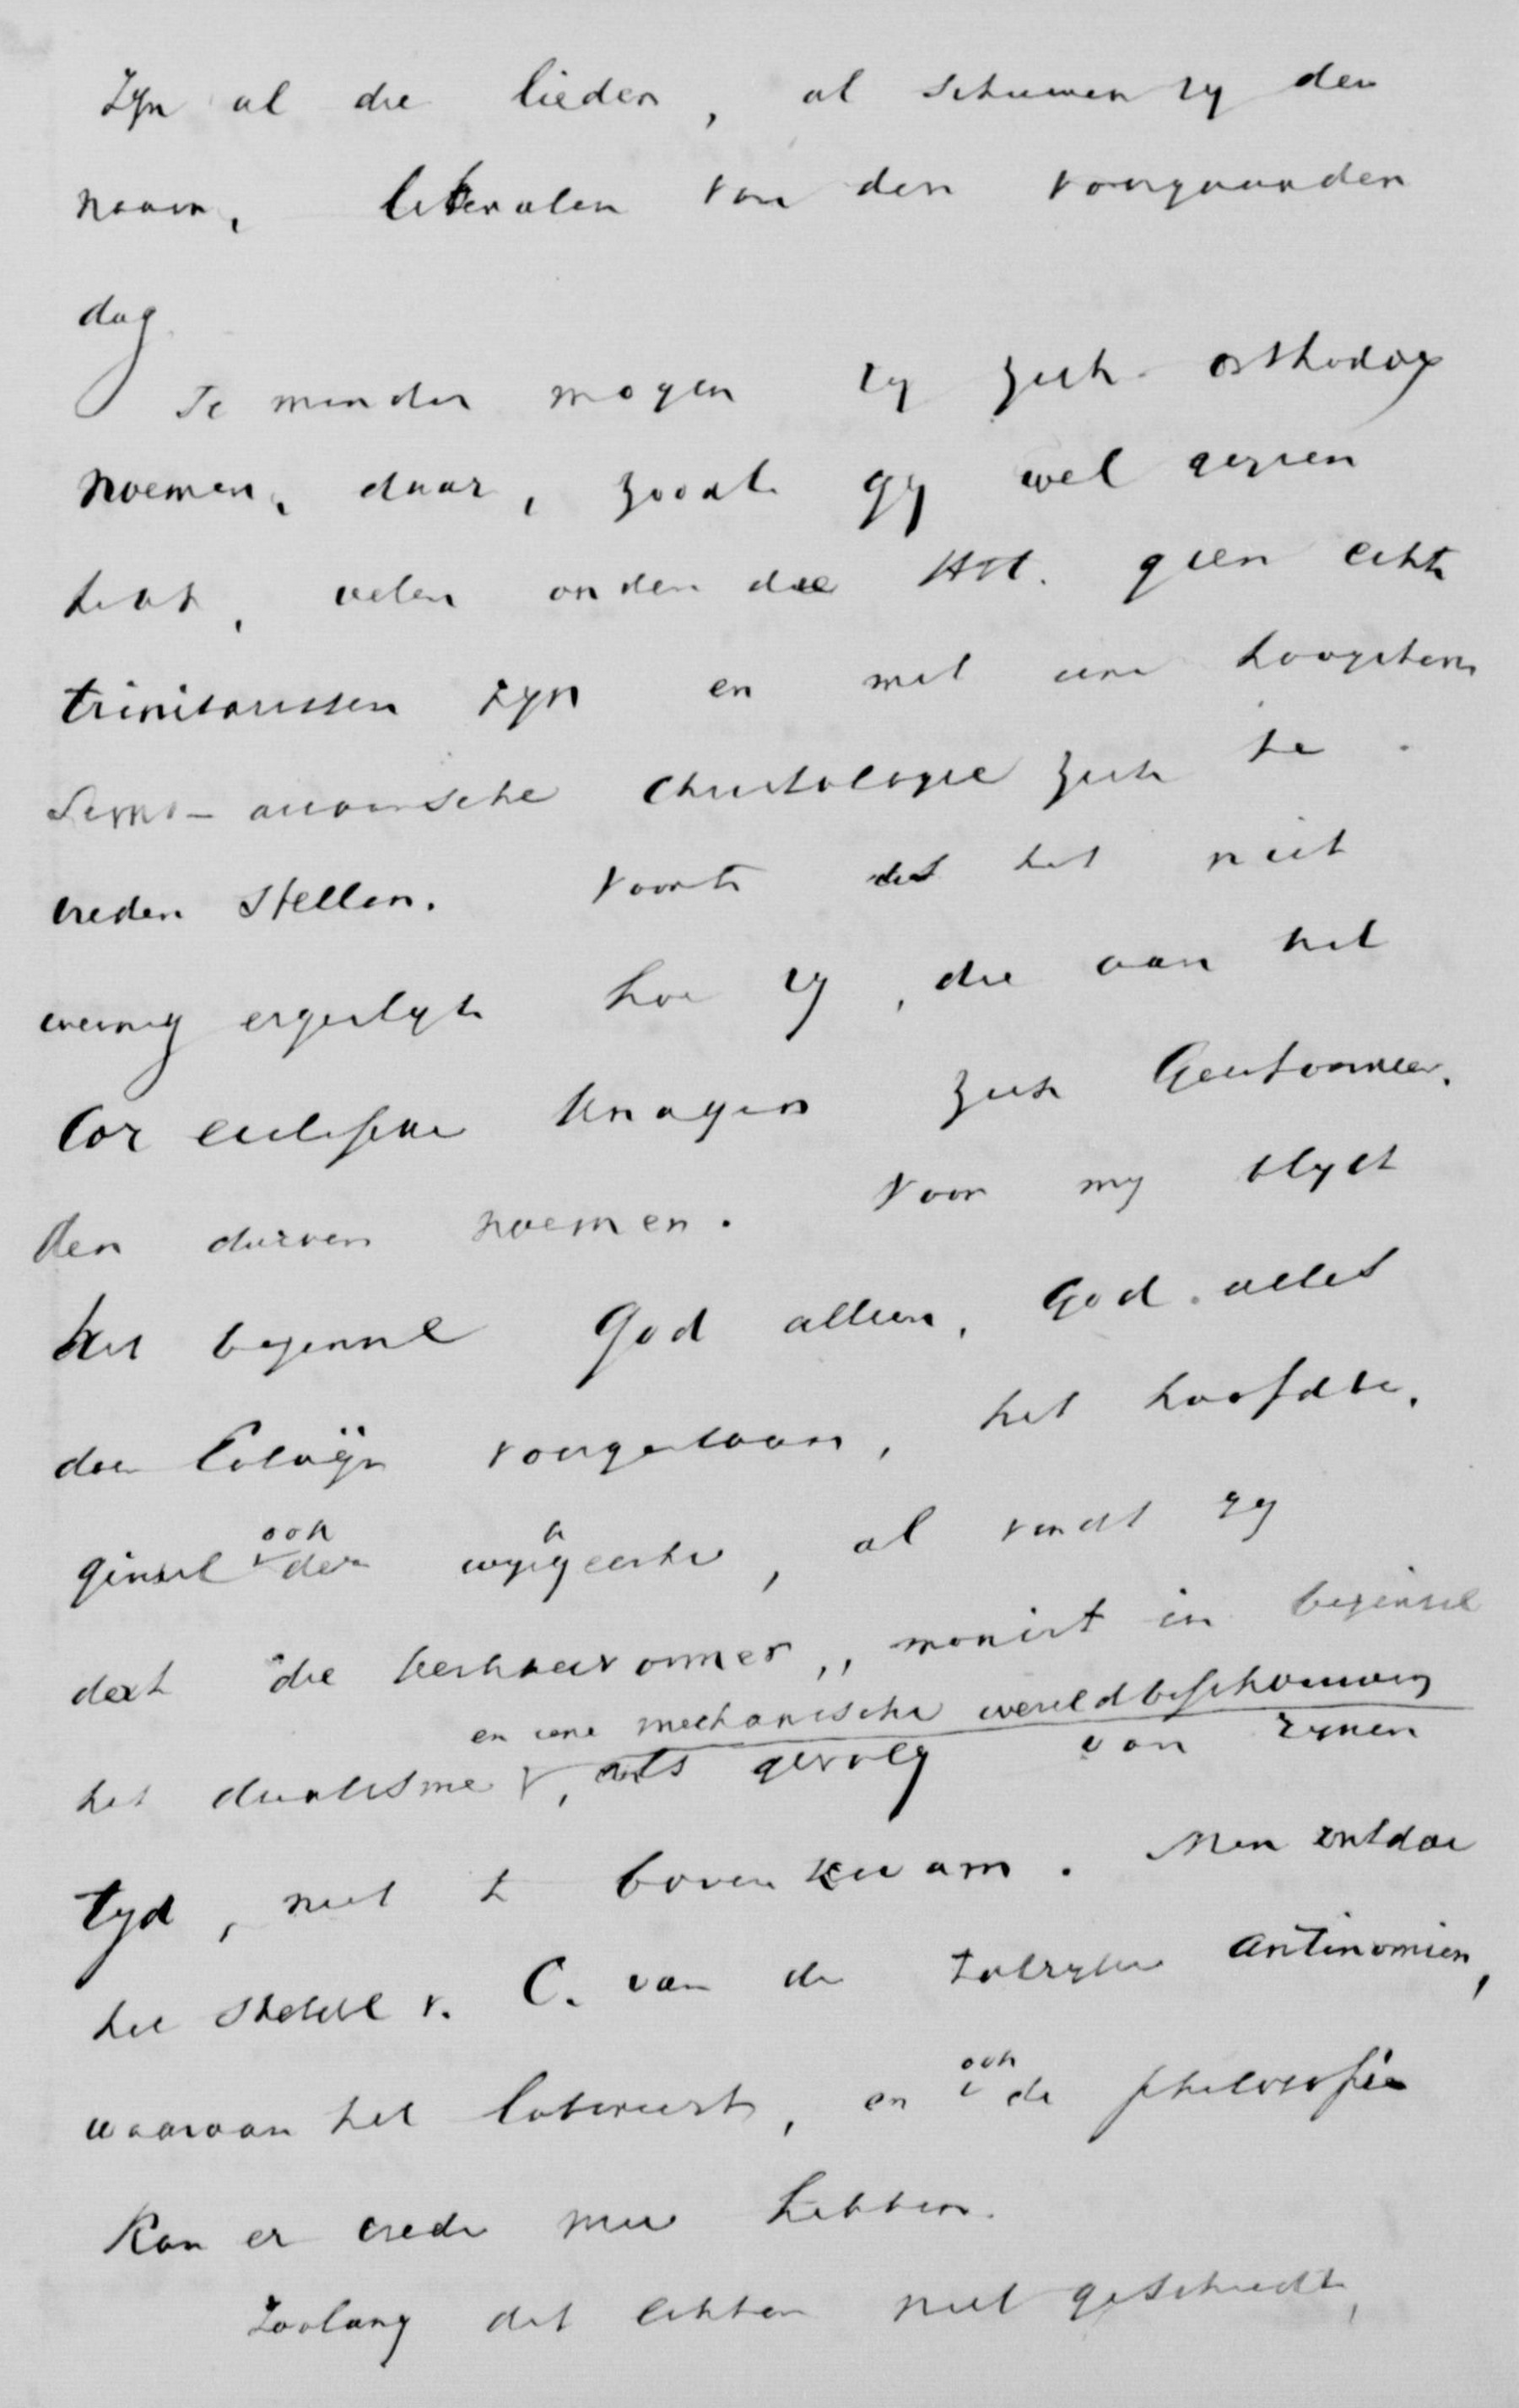 Zyn al die lieden, al schuwen zy den
naam, liberalen van den voorgaanden
dag.
Te minder mogen zy zich orthodox
noemen, daar, zooals gy wel gezien
hebt, velen onder die HH. geen echte
trinitarissen zyn en met eene hoogstens
Semi-ariaansche Christologie zich te
vreden stellen. Voorts is het niet
weinig ergerlyk hoe zy, die aan het
Cor ecclesiae knagen zich Geestverwan-
ten durven noemen. Voor my blyft
het beginsel God alleen, God alles
door Calvyn voorgestaan, het hoofdbe-
ginsel ook der wysbegeerte, al vindt zy
dat die kerkhervormer, monist in beginsel
het dualisme en eene mechanische wereldbeschouwing, als gevolg van zynen
tyd, niet te boven kwam. Men ontdoe
het stelsel v. C. van de talryke antinomien,
waaraan het laboreert, en ook de philosofie
kan er vrede mee hebben.
Zoolang dit echter niet geschiedt,